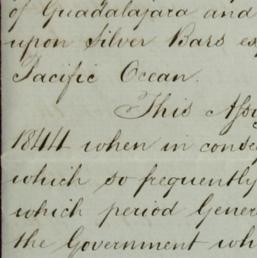 of Guadalajara and
upon Silver Bars ex
Pacific Ocean.
This Assi
1844 when in conse
which so frequently
which period Gener
the Government wh